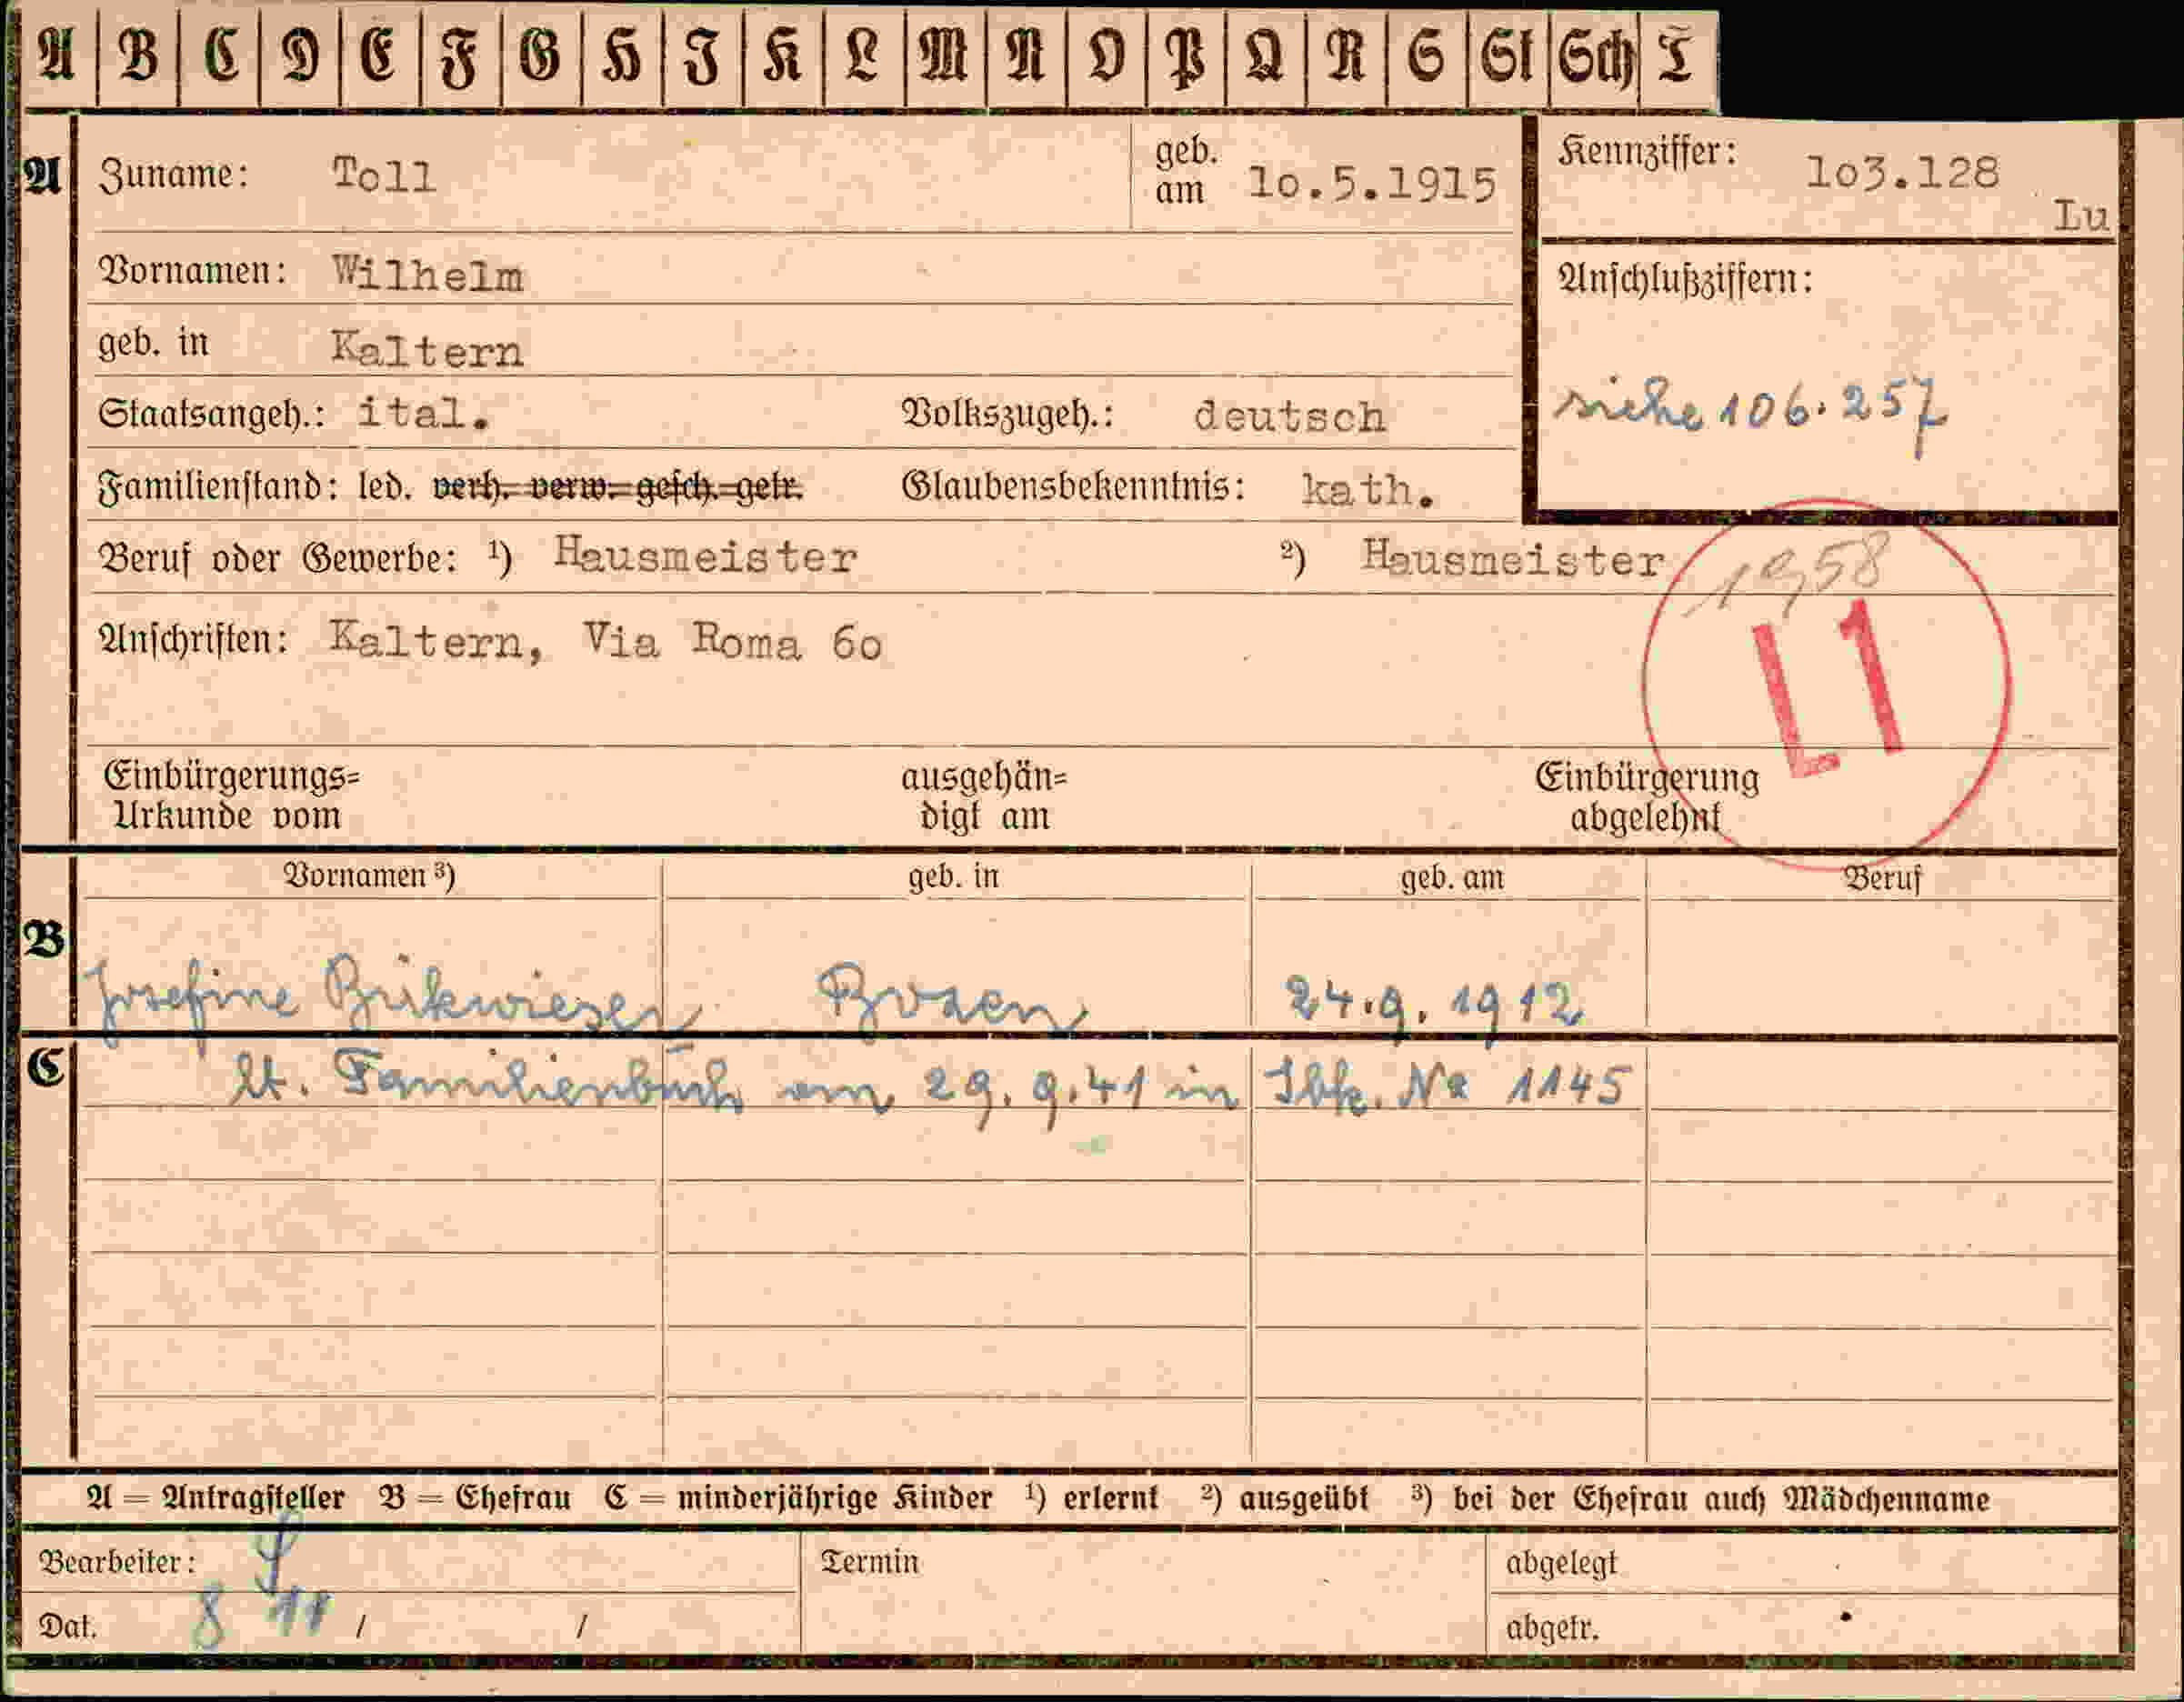 A B C D E F G H J K L M N O P Q R S St Sch T
A Zuname: Toll geb. am 10.5.1915 Kennziffer: 103.128
Lu
Vornamen: Wilhelm Anschlußziffern:
geb. in Kaltern
Staatsangeh.: ital. Volkszugeh.: deutsch siehe 106.257
Familienstand: led. verh. verw. gesch. getr. Glaubensbekenntnis: kath.
Beruf oder Gewerbe: ¹) Hausmeister ²) Hausmeister 1958
Anschriften: Kaltern, Via Roma 60 L1
Einbürgerungs= ausgehän= Einbürgerung
Urkunde vom digt am abgelehnt
Vornamen ³) geb. in geb. am Beruf
B
Josefine Bozen 24.9.1912
C lt. Familienbuch am 29.9.41 in Ibk. Nr 1145
A = Antragsteller B = Ehefrau C = minderjährige Kinder ¹) erlernt ²) ausgeübt ³) bei der Ehefrau auch Mädchenname
Bearbeiter: Termin abgelegt
Dat. 8 11 / / abgetr.